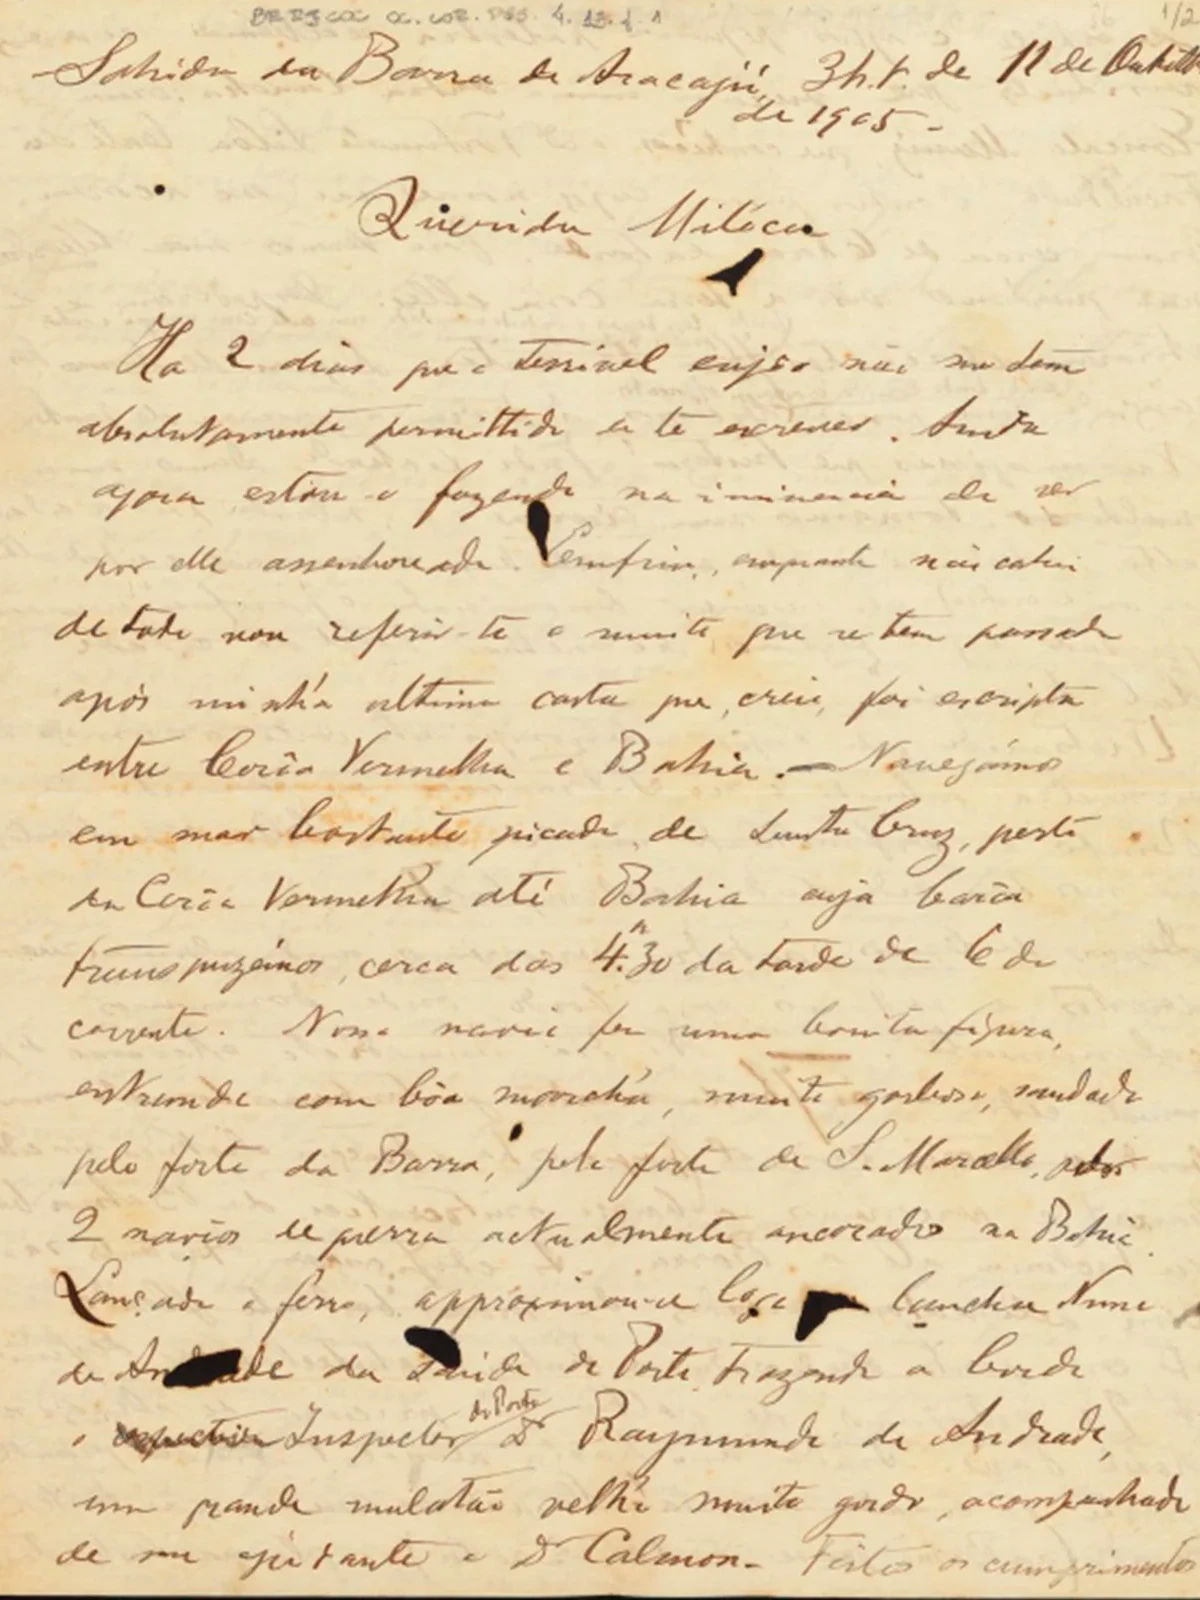 BR RJCOC OC.COR.PES. 4. 13. 1. 1
1/2
Sahida da Barra de Aracajú, 3h.t. de 11 de Outubro
de 1905 -
Querida Milóca
Ha 2 dias que o terrivel enjôo não me tem
absolutamente permittido a te escrever. Ainda
agora estou-o fazendo na iminencia de ser
por elle assenhoreado. Emfim, emquanto não cahir
de todo vou referir-te o muito que se tem passado
após minha ultima carta que, creio, foi escripta
entre Corôa Vermelha e Bahia. - Navegámos
em mar bastante picado de Santa Cruz, perto
da Corôa Vermelha até Bahia cuja barra
transpuzémos, cerca das 4.h30 da tarde de 6 do
corrente. Nosso navio fez uma bonita figura,
entrando com bôa marcha, muito garboso, saudado
pelo forte da Barra, pelo forte de S. Marcello, pelos
2 navios de guerra actualmente ancorados na Bahia.
Lançado o ferro, approximou-se logo a lancha Nuno
de Andrade da Saúde do Porto trazendo a bordo
o Inspector do Porto Dr Raymundo de Andrade,
um grande mulatão velho muito gordo, acompanhado
de seu ajudante o Dr Calmon - Feitos os cumprimentos